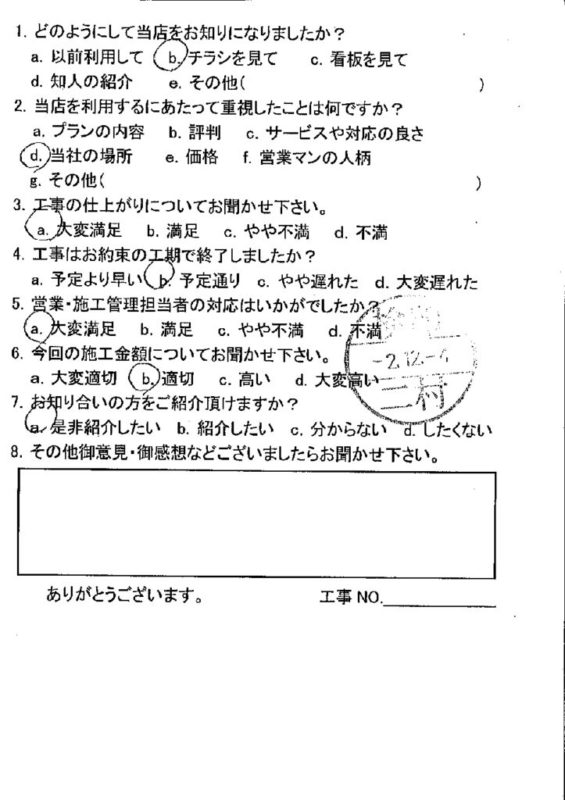 1. どのようにして当店をお知りになりましたか？
a. 以前利用して b. チラシを見て c. 看板を見て
d. 知人の紹介 e. その他( )
2. 当店を利用するにあたって重視したことは何ですか？
a. プランの内容 b. 評判 c. サービスや対応の良さ
d. 当社の場所 e. 価格 f. 営業マンの人柄
g. その他( )
3. 工事の仕上がりについてお聞かせ下さい。
a. 大変満足 b. 満足 c. やや不満 d. 不満
4. 工事はお約束の工期で終了しましたか？
a. 予定より早い b. 予定通り c. やや遅れた d. 大変遅れた
5. 営業・施工管理担当者の対応はいかがでしたか？
a. 大変満足 b. 満足 c. やや不満 d. 不満
-2.12.-4
6. 今回の施工金額についてお聞かせ下さい。
a. 大変適切 b. 適切 c. 高い d. 大変高い
二村
7. お知り合いの方をご紹介頂けますか？
a. 是非紹介したい b. 紹介したい c. 分からない d. したくない
8. その他御意見・御感想などございましたらお聞かせ下さい。
ありがとうございます。 工事 NO.